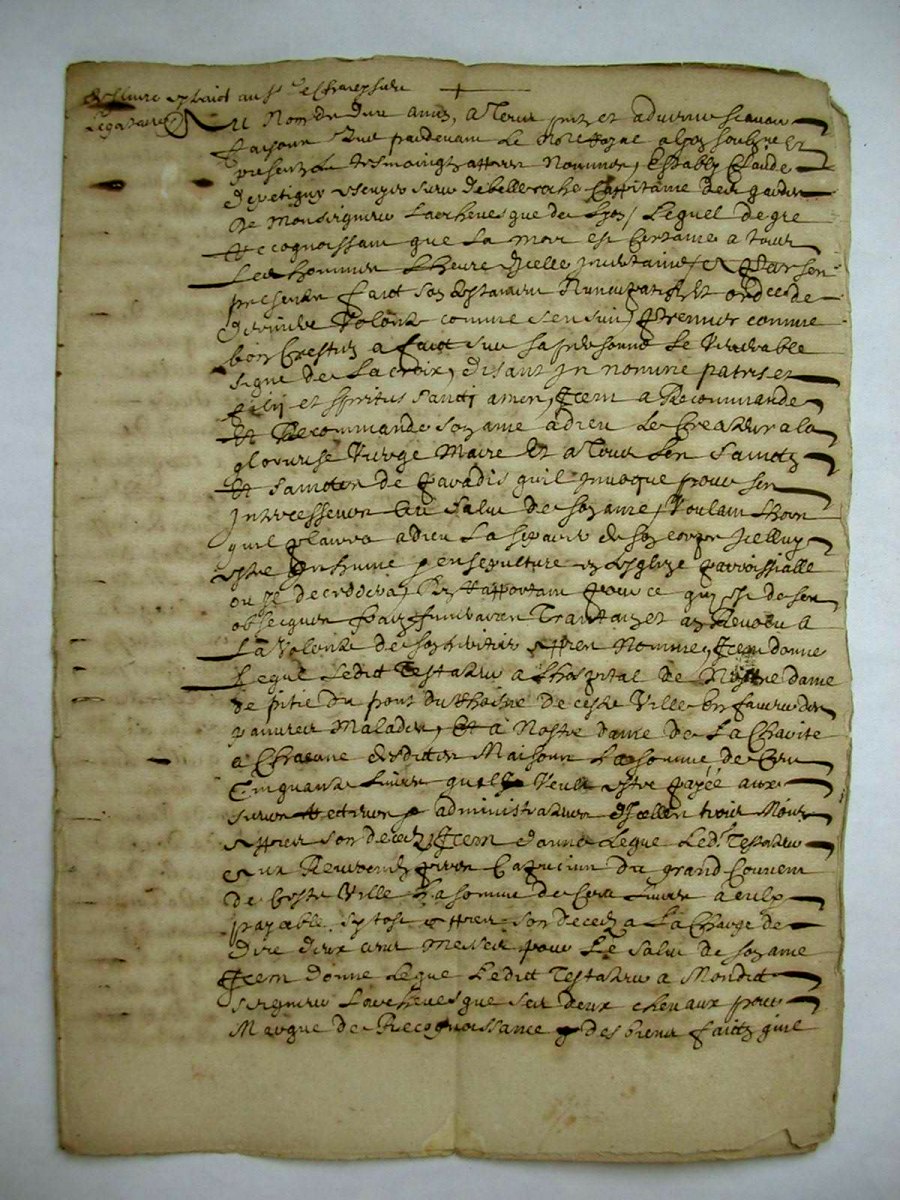 Legataire
Au Nom de Dieu amen, a Tous pntz et advenir scavoir
faisons que pardevant Le Notre Royal a Lyon soubzne et
presentz Les tesmoingtz appres Nommes, Estably Claude
de escuyer sieur de belleroche Cappitaine des gardes
De Monseigneur Larchevesque de Lyon, Lequel de gre
Recognoissant que La mort est Certaine a tous
Les hommes Lheure dicelle incertaine, a par ces
presentes faict son testament Nuncupatif et ordce de
derniere Volonte comme sensuit, Premier comme
bon Crestien a faict sur sa personne Le Venerable
signe de La croix, disant In nomine patris et
filij et spiritus sancti amen, Item a Recommande
et Recommande son ame a dieu Le Createur a la
glorieuse Vierge Marie et a Tous Les Sainctz
et sainctes de Paradis quil Invoque pour ses
Intercesseurs au Salut de son ame, Voulant Lhors
quil plairra a dieu La separer de son corps Icelluy
estre Inhume en sepulture en Lesglize parroissialle
ou Il decedera, Se Rapportant pour ce qui est de ses
obseques frais funeraires et au
La Volonte de son heritier appres Nomme, Item donne
Legue Ledict Testateur a Lhospital de Nostre dame
de pitie du pont du Rhosne de ceste Ville en faveur des
pauvres Malades, Et a Nostre dame de La Charite
a Chacune desdictes Maisons La somme de Cent
Cinquante Livres quelle Veult estre payée aux
sieurs Recteurs administrateurs dIcelles trois Mois
appres son deceds, Item donne Legue Led. Testateur
aux Reverendz peres Capucins du grand Couvent
de Ceste Ville La somme de Cent Livres a eulx
payable sytost appres son decedz a La Charge de
dire deux cens Messes pour Le Salut de son ame
Item donne Legue Ledict Testateur a Mondict
seigneur Larchevesque ses deux chevaux pour
Marque de Recognoissance des biens faictz quil